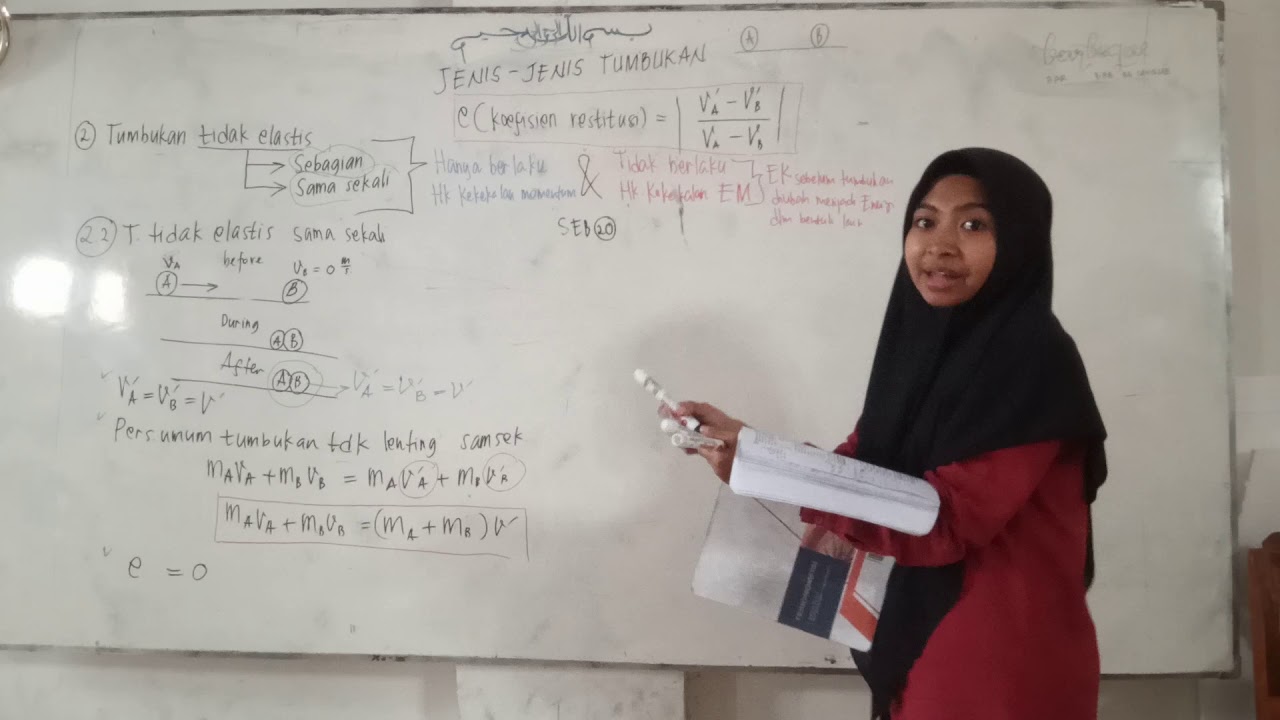 JENIS-JENIS TUMBUKAN
Ⓐ Ⓑ
e (koefisien restitusi) = | V'A - V'B / VA - VB |
② Tumbukan tidak elastis
→ Sebagian
→ Sama sekali
Hanya berlaku
Hk kekekalan momentum
&
Tidak berlaku
Hk Kekekalan EM
EK sebelum tumbukan
diubah menjadi
dlm bentuk
SEB ⑳
2.2 T. tidak elastis sama sekali
before
VA VB = 0 m/s
Ⓐ → Ⓑ
During
ⒶⒷ
After
ⒶⒷ → V'A = V'B = V'
V'A = V'B = V'
Pers. umum tumbukan tdk lenting samsek
mAVA + mBVB = mAV'A + mBV'B
mAVA + mBVB = (mA + mB) V'
e = 0